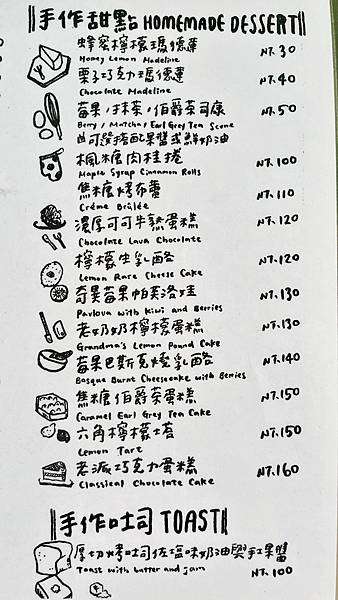 手作甜點 HOMEMADE DESSERT
蜂蜜檸檬瑪德蓮 NT.30
Honey Lemon Madeline
栗子巧克力瑪德蓮 NT.40
Chocolate Madeline
莓果/抹茶/伯爵茶司康 NT.50
Berry/Matcha/Earl Grey Tea Scone
可選搭配果醬或鮮奶油
楓糖肉桂捲 NT.100
Maple Syrup Cinnamon Rolls
焦糖烤布蕾 NT.110
Créme Brûlée
濃厚可可半熟蛋糕 NT.120
Chocolate Lava Chocolate
檸檬生乳酪 NT.120
Lemon Rare Cheese Cake
奇異莓果帕芙洛娃 NT.130
Pavlova with kiwi and Berries
老奶奶檸檬蛋糕 NT.130
Grandma's Lemon Pound Cake
莓果巴斯克燒乳酪 NT.140
Basque Burnt Cheesecake with Berries
焦糖伯爵茶蛋糕 NT.150
Caramel Earl Grey Tea Cake
六角檸檬塔 NT.150
Lemon Tart
老派巧克力蛋糕 NT.160
Classical Chocolate Cake
手作吐司 TOAST
厚切烤吐司佐鹽味奶油與手工果醬
Toast with butter and jam NT.100